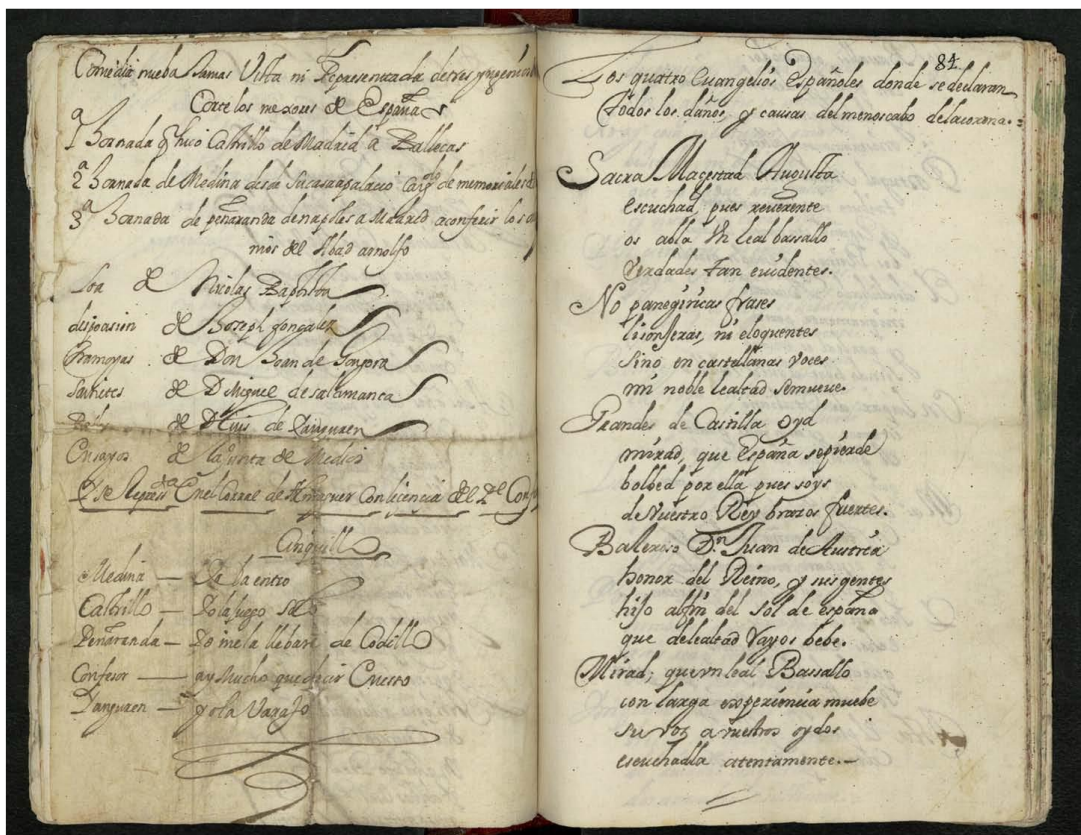 Comedia nueba Jamas Vista ni Representada de tres yngenios
Corte los mexores de España
1ª Jornada q hiço Castrillo de Madrid a Ballecas
2ª Jornada de Medina desde su casa a palacio de memoriales
3ª Jornada de peñaranda de napoles a Madrid a conferir los
del Abad arnolfo
Loa de Nicolas
de Joseph gonçalez
tramoyas de Don Juan de Gongora
Sainetes de D Miguel de salamanca
de D luis de Oyanguren
Ensayos de la Junta de Medios
en el Corral de con licencia del
Medina — Yo la entro
Castrillo — Yo la juego solo
Peñaranda — Yo me la llebare de Codillo
Confesor — ay Mucho que decir en esto
Oyanguren — y yo la Varajo
84
Los quatro Euangelios Españoles donde se declaran
todos los daños, y causas del menoscabo de la corona.=
Sacra Magestad Augusta
escuchad, pues reuerente
os abla Vn leal bassallo
Verdades tan euidentes.
No panegiricas frases
lisonjeras, ni eloquentes
sino en castellanas voces
mi noble lealtad se mueue.
Grandes de Castilla oyd
mirad, que España se pierde
bolbed por ella pues soys
de Nuestro Rey brazos fuertes.
Baleroso Dn Juan de Austria
honor del Reino, y sus gentes
hijo al fin del sol de españa
que de lealtad rayos bebe.
Mirad, que vn leal Bassallo
con larga experiencia muebe
su voz a vuestros oydos
escuchadla atentamente.—